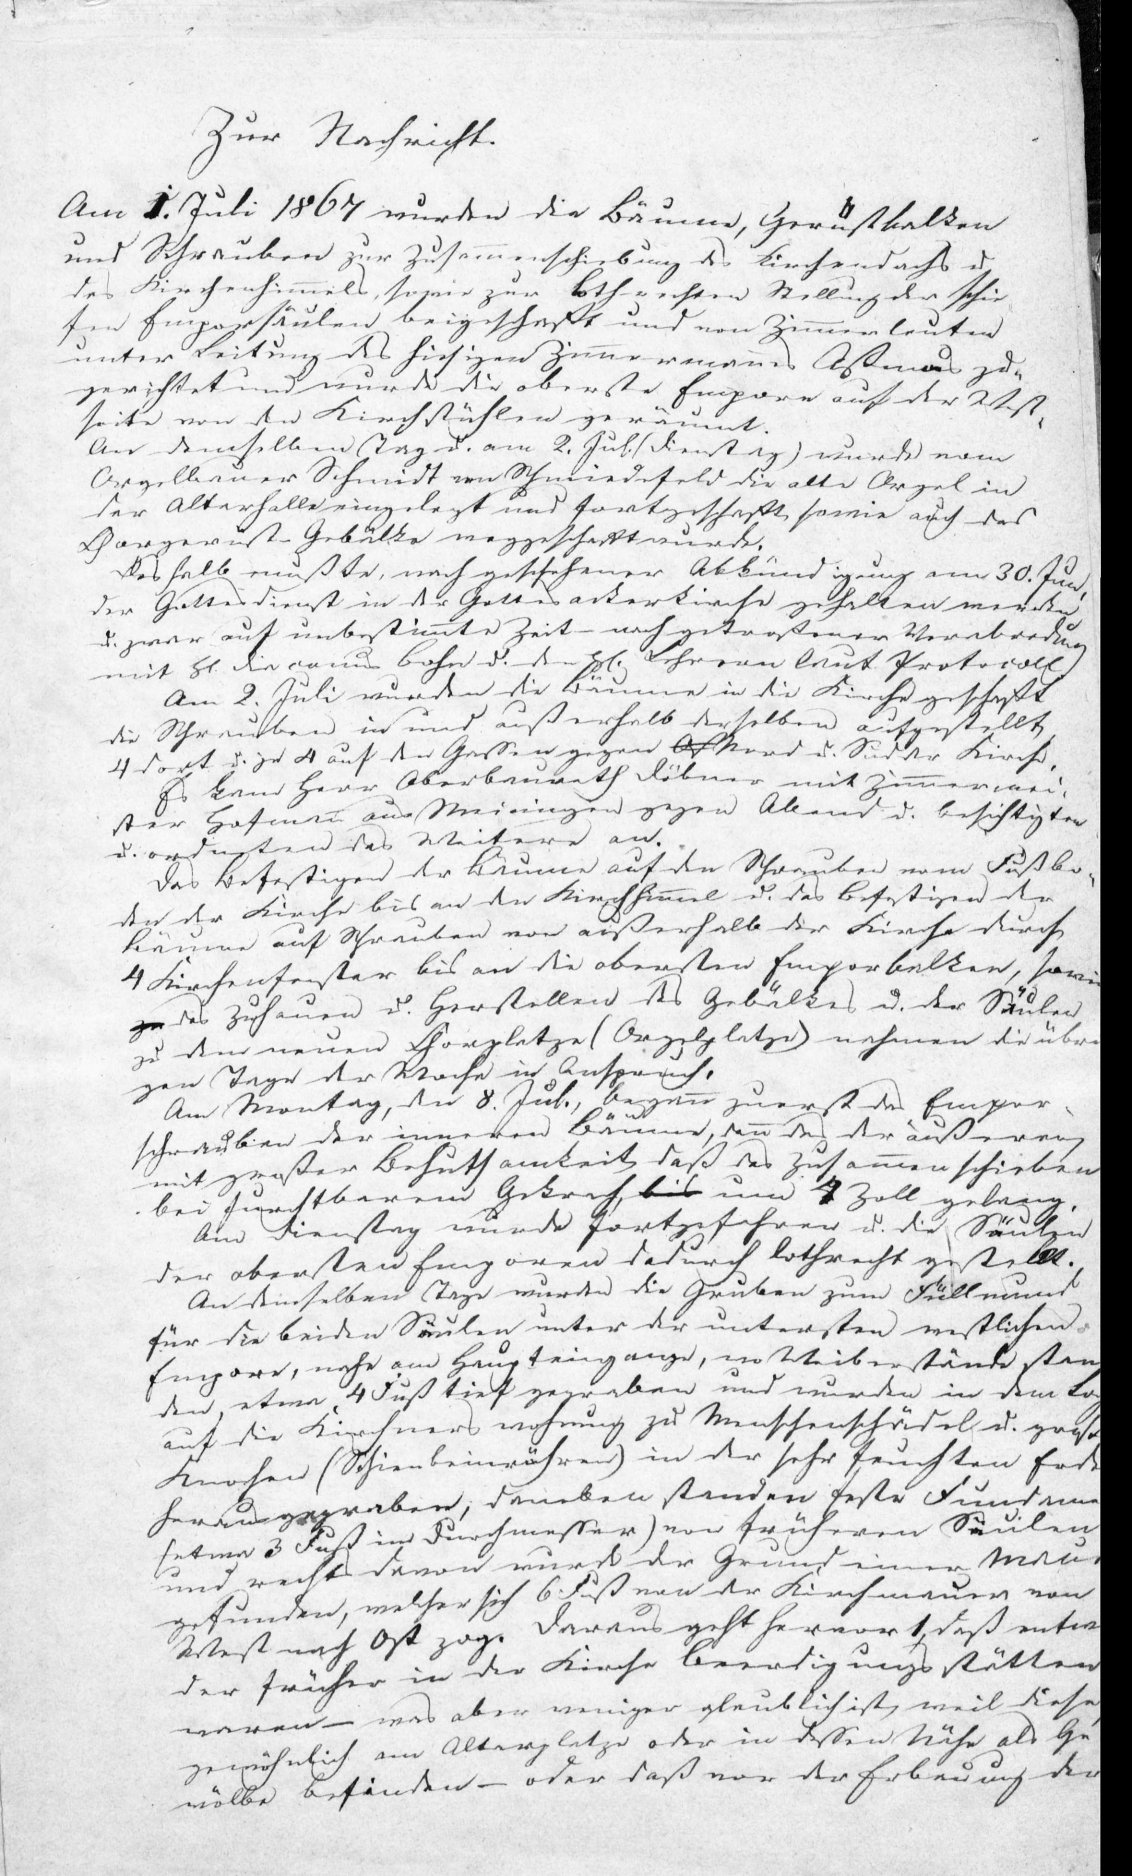 Zur Nachricht.
Am 1. Juli 1867 wurden die Bäume, Gerüstbalken
und Schrauben zur Zusammenschiebung des Kirchendachs u
des Kirchenhimmels, sowie zur lothrechten Stellung der schie-
fen Emporsäulen beigeschafft und von Zimmerleuten
unter Leitung des hiesigen Zimmermanns Aßmus zu-
gerichtet und wurde die oberste Empore auf der West-
seite von den Kirchstühlen geräumt.
An demselben Tag u. am 2. Jul. (Dienstag) wurde vom
Orgelbauer Schmidt von Schmiedefeld die alte Orgel in
der Altarhalle eingelegt und fortgeschafft, sowie auch das
Chorgerüst-Gebälke weggeschafft wurde.
Deshalb mußte, nach geschehener Abkündigung am 30. Jun.,
der Gottesdienst in der Gottesackerkirche gehalten werden
u. zwar auf unbestimmte Zeit – nach getroffener Verabredung
mit H. Diaconus Bohn u. den H. Lehrern laut Protocoll
Am 2. Juli wurden die Bäume in die Kirche geschafft
die Schrauben in und außerhalb derselben aufgestellt,
4 dort u. je 4 auf den Gassen gegen Nord u. Süd der Kirche.
Es kam Herr Oberbaurath Döbner mit Zimmermei-
ster Hofmann aus Meiningen gegen Abend u. besichtigten
u. ordneten das Weitere an.
Das Befestigen der Bäume auf den Schrauben vom Fußbo-
den der Kirche bis an den Kirchhimmel u. das Befestigen der
Bäume auf Schrauben von außerhalb der Kirche durch
4 Kirchenfenster bis an die obersten Emporbalken, sowie
das Zuhauen u. Herstellen des Gebälkes u. der Säulen
zu dem neuen Chorplatze (Orgelplatze) nahmen die übri
gen Tage der Woche in Anspruch.
Am Montag, den 8. Jul., begann zuerst das Empor-
schrauben der inneren Bäume, dann das der äußeren,
mit großer Behuthsamkeit, daß das Zusammenschieben
bei furchtbarem Gekrach, bis um 4 Zoll gelang.
Am Dienstag wurde fortgefahren u. die Säulen
der obersten Emporen dadurch lothrecht gestellt.
An demselben Tage wurden die Gruben zum Füllmund
für die beiden Säulen unter der untersten westlichen
Empore, nahe am Haupteingange, wo Weiberstände stan
den, etwa 4 Fuß tief gegraben und wurden in dem
auf die Kirchnerswohnung zu Menschenschädel u. große
Knochen (Schienbeinröhren) in der sehr feuchten Erde
herausgegraben, daneben standen feste Fundame
(etwa 3 Fuß im Durchmesser) von früheren Säulen
und rechts davon wurde der Grund einer Mau
gefunden, welcher sich 6 Fuß von der Kirchmauer von
West nach Ost zog. Daraus geht hervor 1, daß entwe
der früher in der Kirche Beerdigungsstätten
waren – was aber weniger glaublich ist, weil diese,
gewöhnlich am Altarplatze oder in dessen Nähe als Ge
wölbe befinden – oder daß vor der Erbauung der